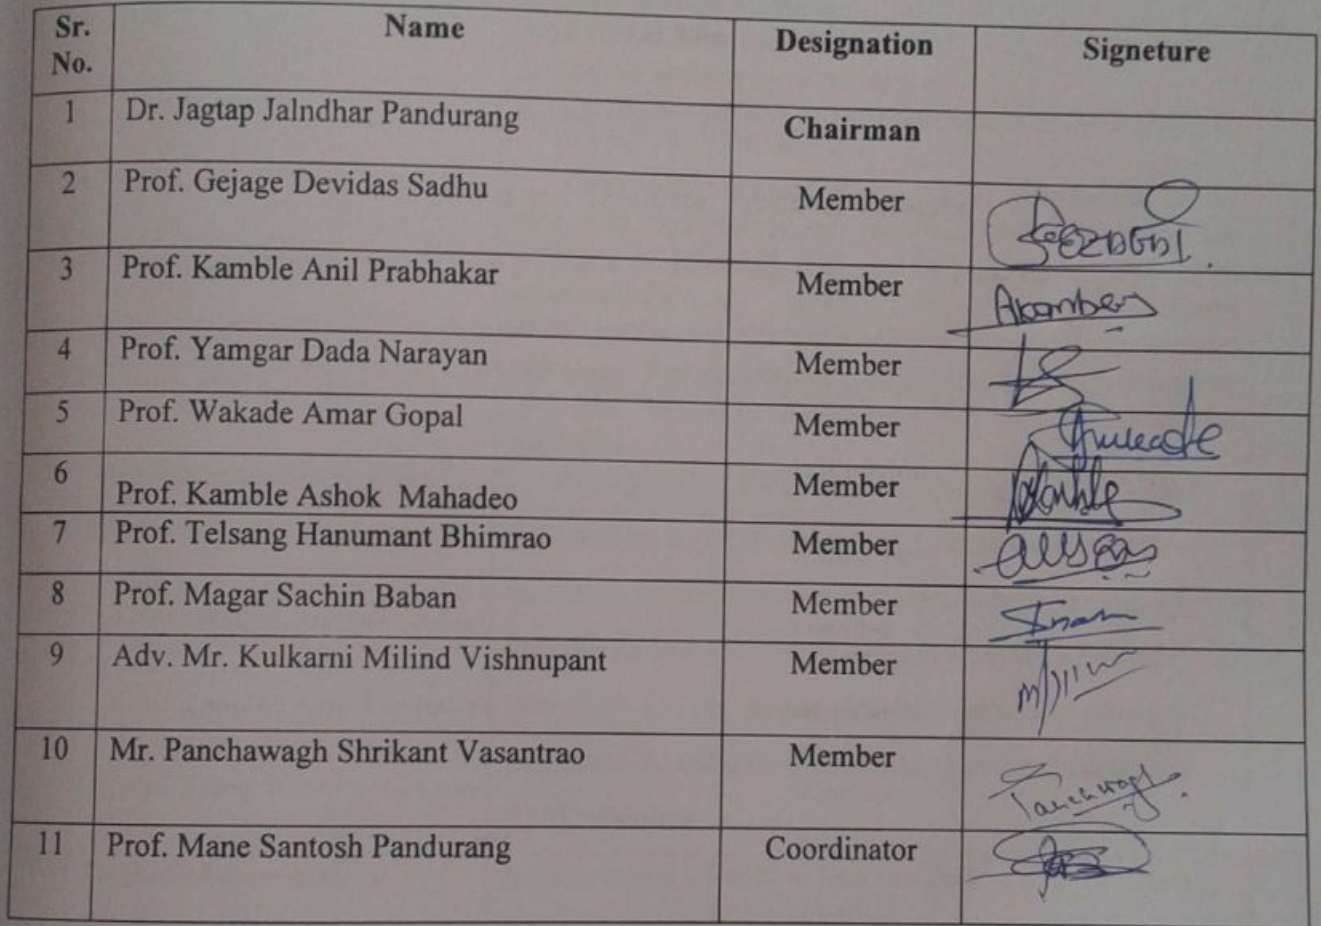 Sr. No. Name Designation Signeture
1 Dr. Jagtap Jalndhar Pandurang Chairman
2 Prof. Gejage Devidas Sadhu Member
3 Prof. Kamble Anil Prabhakar Member
4 Prof. Yamgar Dada Narayan Member
5 Prof. Wakade Amar Gopal Member
6 Prof. Kamble Ashok Mahadeo Member
7 Prof. Telsang Hanumant Bhimrao Member
8 Prof. Magar Sachin Baban Member
9 Adv. Mr. Kulkarni Milind Vishnupant Member
10 Mr. Panchawagh Shrikant Vasantrao Member
11 Prof. Mane Santosh Pandurang Coordinator